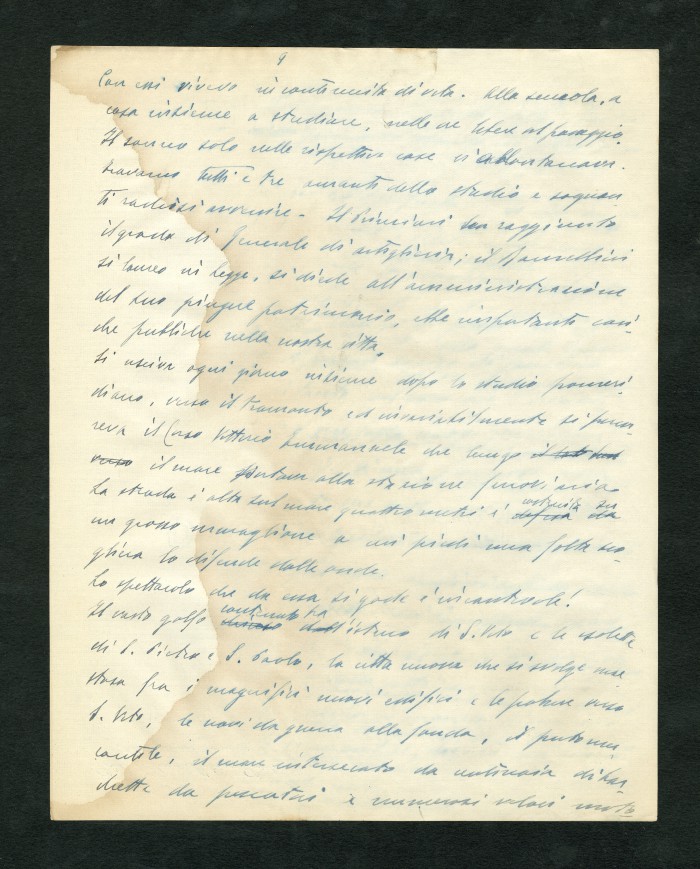 9
Con essi vivevo in continuità di vita. Alla scuola, a
casa insieme a studiare, nelle ore libere al passeggio.
Il sonno solo nelle rispettive case ci allontanava.
Eravamo tutti e tre amanti dello studio e sognan-
ti radiosi avvenire - Il Criscuoli ha raggiunto
il grado di Generale di artiglieria; il
si laureò in legge, si diede all'amministrazione
del suo pingue patrimonio, ebbe importanti cari-
che pubbliche nella nostra città.
Si usciva ogni giorno insieme dopo lo studio pomeri-
diano, verso il tramonto ed invariabilmente si percor-
reva il Corso Vittorio Emmanuele che lungo
verso il mare portava alla stazione ferroviaria
La strada è alta sul mare quattro metri è costruita su
un grosso muraglione a cui piedi una folta sco-
gliera lo difende dalle onde.
Lo spettacolo che da essa si gode è incantevole!
Il vasto golfo contenuto tra l'istmo di S. Vito e le isolette
di S. Pietro e S. Paolo, la città nuova che si svolge mae
stosa fra i magnifici nuovi edifici e le palme verso
S. Vito, le navi da guerra alla fonda, il porto mer
cantile, il mare intersecato da centinaia di bar-
chette da pescatori e numerosi veloci moto